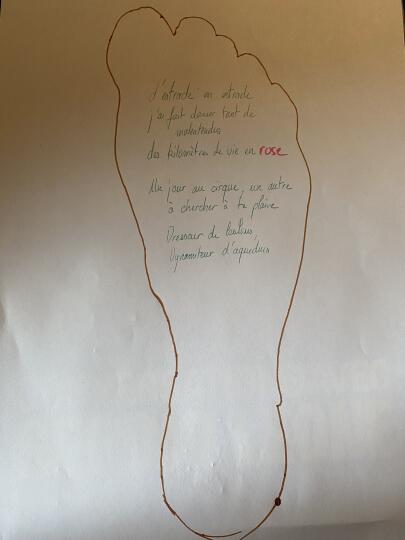 D'estrade en estrade
j'ai fait danser tant de
malentendus
des kilomètres de vie en rose
Un jour au cirque, un autre
à chercher à te plaire
Dresseur de loulous,
Dynamiteur d'aqueducs